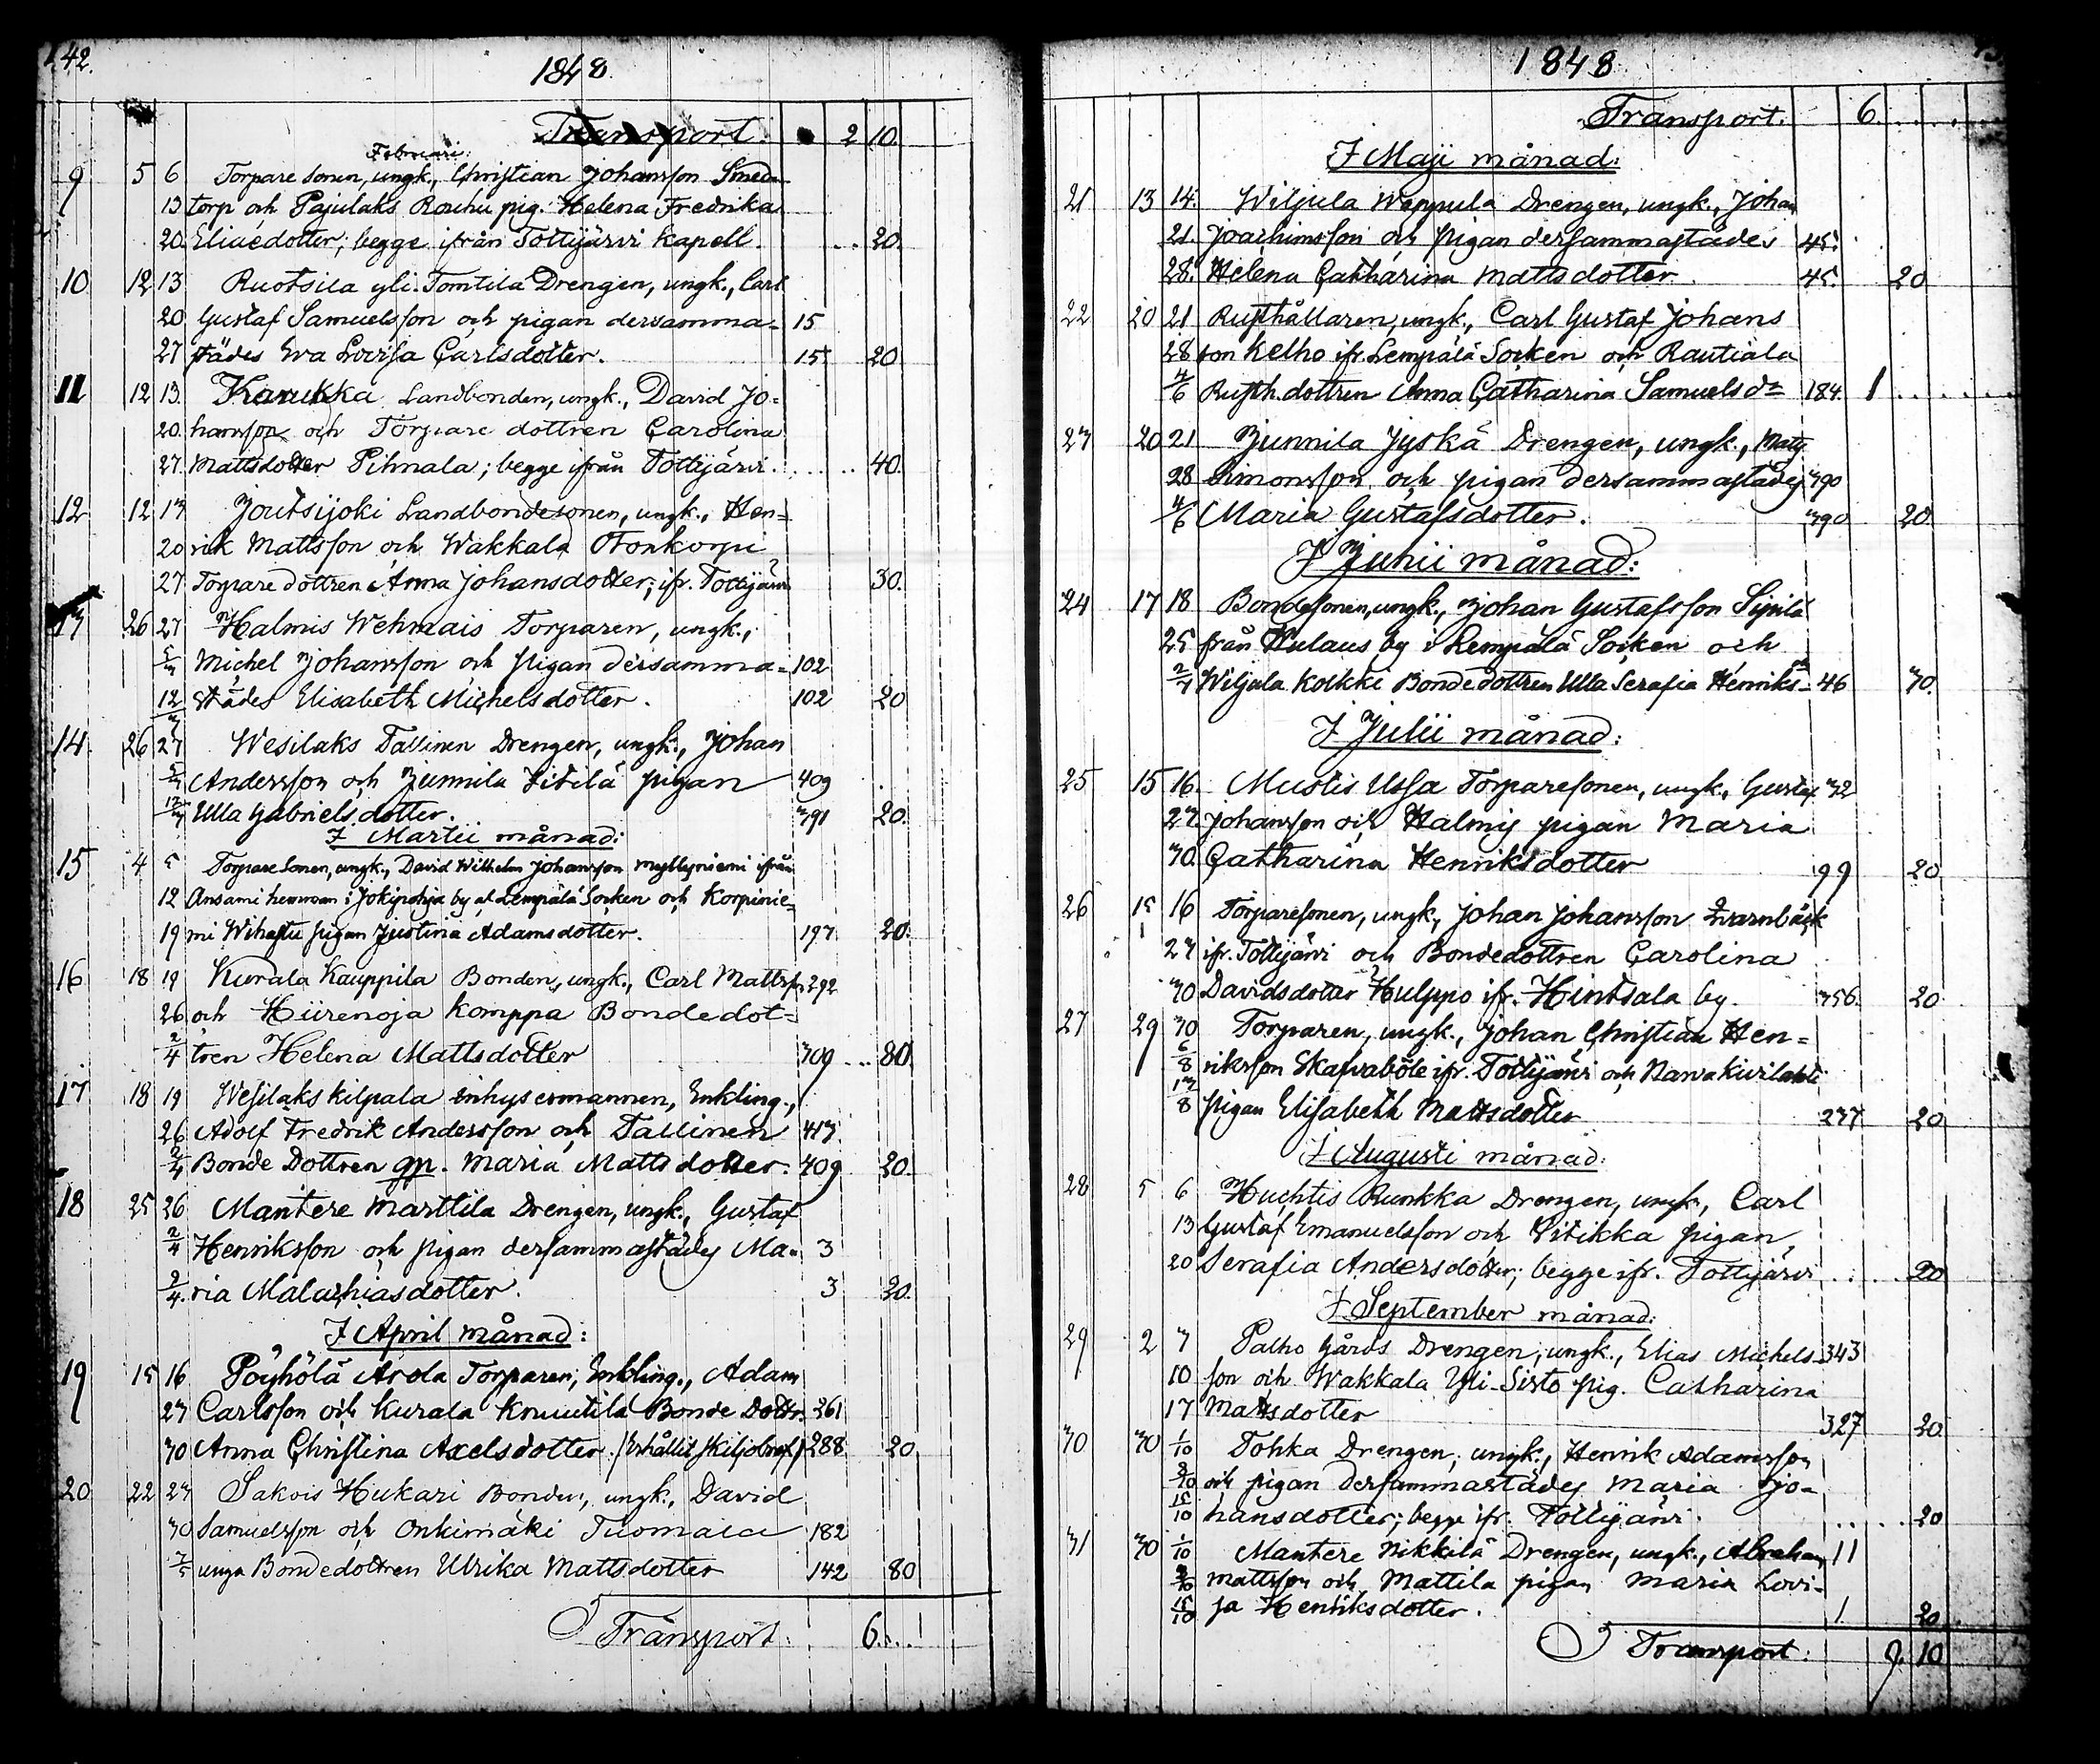 142.
1848.
Transport. 2 10.
Februari.
9 5 6 Torpare sonen, ungk., Christian Johansson Smeds-
13 torp och Pajulaks Rouhu pig. Helena Fredrika
20 Eliaedotter; begge ifrån Tottijärvi Kapell. .. 20.
10 12 13 Ruotsila yli-Tomtila Drengen, ungk., Carl
20 Gustaf Samuelsson och pigan dersamma- 15
27 städes Eva Lovisa Carlsdotter. 15 20
11 12 13. Karukka Landbonden, ungk., David Jo=
20. hansson och Torpare dottren Carolina
27. Mattsdotter Pihnala; begge ifrån Tottijärvi. ..... 40.
12 12 13 Joutsijoki Landbondesonen, ungk., Hen=
20 rik Mattsson och Wakkala Tonkorpi
27 Torpare dottren Anna Johansdotter; ifr. Tottijärvi 30.
13 26 27 Halmis Wehmais Torparen, ungk.,
5/3 Michel Johansson och pigan dersamma= 102
12/3 städes Elisabeth Michelsdotter. 102 20
14. 26 27 Wesilaks Tallinen Drengen, ungk., Johan
5/3 Andersson och Junnila Fitilä pigan 409
12/3 Ulla Gabrielsdotter. 391 20.
I Martii månad:
15 4 5 Torpare sonen, ungk., David Wilhelm Johansson Myllyniemi ifrån
12 Ansami hemman i Jokipohja by af Lempälä Socken och Korpinie=
19 mi Wihattu pigan Justina Adamsdotter. 197 20.
16 18 19 Kurala Kauppila Bonden, ungk., Carl Mattss. 292
26 och Hiirenoja Komppa Bondedot=
2/4 tren Helena Mattsdotter 309 ... 80.
17 18 19 Wesilaks Kilpala inhysesmannen, Enkling.,
26 Adolf Fredrik Andersson och Tallinen 413.
2/4 Bonde Dottren gp. Maria Mattsdotter. 409 20.
18 25 26 Mantere Marttila Drengen, ungk., Gustaf
2/4 Henriksson och pigan dersammastädes Ma= 3
9/4. ria Malachiasdotter. 3 20.
I April månad:
19 15 16 Pöyhölä Arola Torparen, Enkling., Adam
23 Carlsson och Kurala Kruutila Bonde Dottr. 261
30 Anna Christina Axelsdotter. (Erhållit skiljobref) 288 20
20 22 23 Sakois Hukari Bonden, ungk., David
30 Samuelsson och Onkimäki Tuomala 182
7/5 unga Bondedottren Ulrika Mattsdotter 142 80
Transport. 6...
1848
Transport. 6. ...
I Maji månad:
21 13 14. Wiljula Wäppula Drengen, ungk., Johan
21. Joachimsson och pigan dersammastädes 45.
28. Helena Catharina Mattsdotter. 45. 20
22 20 21 Rusthållaren, ungk., Carl Gustaf Johans
28 son Kelho ifr. Lempälä Socken och Rautiala
4/6 Rusth.dottren Anna Catharina Samuelsdr 184. 1 ....
23 20 21 Junnila Jyskä Drengen, ungk., Matts
28 Simonsson och pigan dersammastädes 390
4/6 Maria Gustafsdotter. 390 20
I Junii månad:
24 17 18 Bondesonen, ungk., Johan Gustafsson Sipilä
25 från Hulaus by i Lempälä Socken och
2/7 Wiljala Kolkki Bondedottren Ulla Serafia Henriks- 46 70.
I Julii månad:
25 15 16. Mustis Ussa Torparesonen, ungk., Gustaf 32
23. Johansson och Halmis pigan Maria
30. Catharina Henriksdotter 99 20
26 15 16 Torparesonen, ungk., Johan Johansson Qvarnbäck
23 ifr. Tottijärvi och Bondedottren Carolina
30 Davidsdotter Hulppo ifr. Hintsala by. 356. 20
27 29 30 Torparen, ungk., Johan Christian Hen=
6/8 riksson Skafvaböle ifr. Tottijärvi och Narva Kirilahti
13/8 pigan Elisabeth Mattsdotter 237 20
I Augusti månad:
28 5 6 Huchtis Runkka Drengen, ungk., Carl
13 Gustaf Emanuelsson och Pitikka pigan
20 Serafia Andersdotter; begge ifr. Tottijärvi ..... 20
I September månad:
29 2 3 Palho Gårds Drengen, ungk., Elias Michels- 343
10 son och Wakkala Yli-Sisto pig. Catharina
17 Mattsdotter 327 20
30 30 1/10 Tohka Drengen, ungk., Henrik Adamsson
8/10 och pigan dersammastädes Maria Jo-
15/10 hansdotter; begge ifr. Tottijärvi. .... 20
31 30 1/10 Mantere Nikkilä Drengen, ungk., Abraham 11
8/10 Mattsson och Mattila pigan Maria Lovi-
15/10 sa Henriksdotter. 1. 20.
Transport: 9. 10